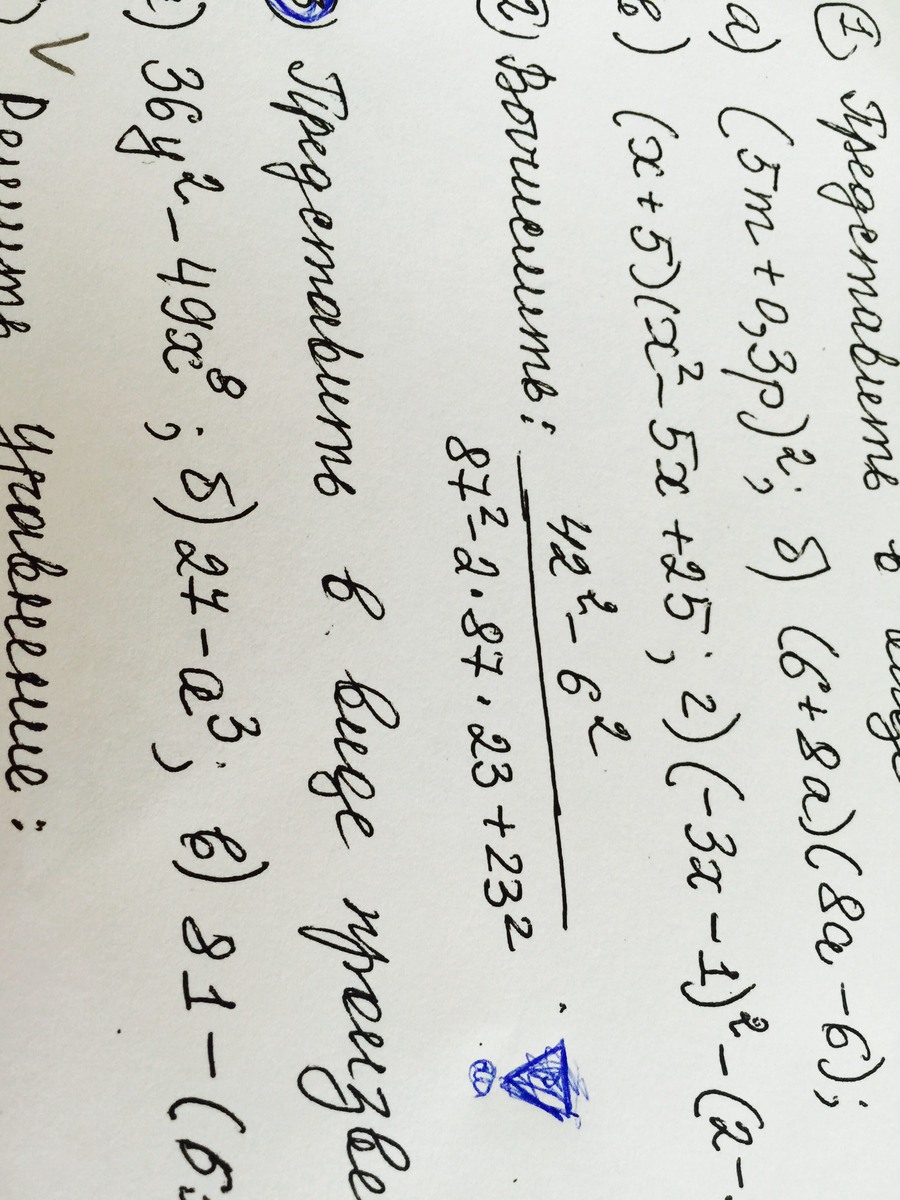 1) Представить в виде
а) (5m + 0,3p)²; б) (6 + 8a)(8a - 6);
в) (x + 5)(x² - 5x + 25; г) (-3x - 1)² - (2 -
2) Вочислить:
42² - 6²
87² - 2 · 87 · 23 + 23²
3) Представить в виде произве
) 36y² - 49x⁸; б) 27 - a³; в) 81 - (6
) Решить уравнение: